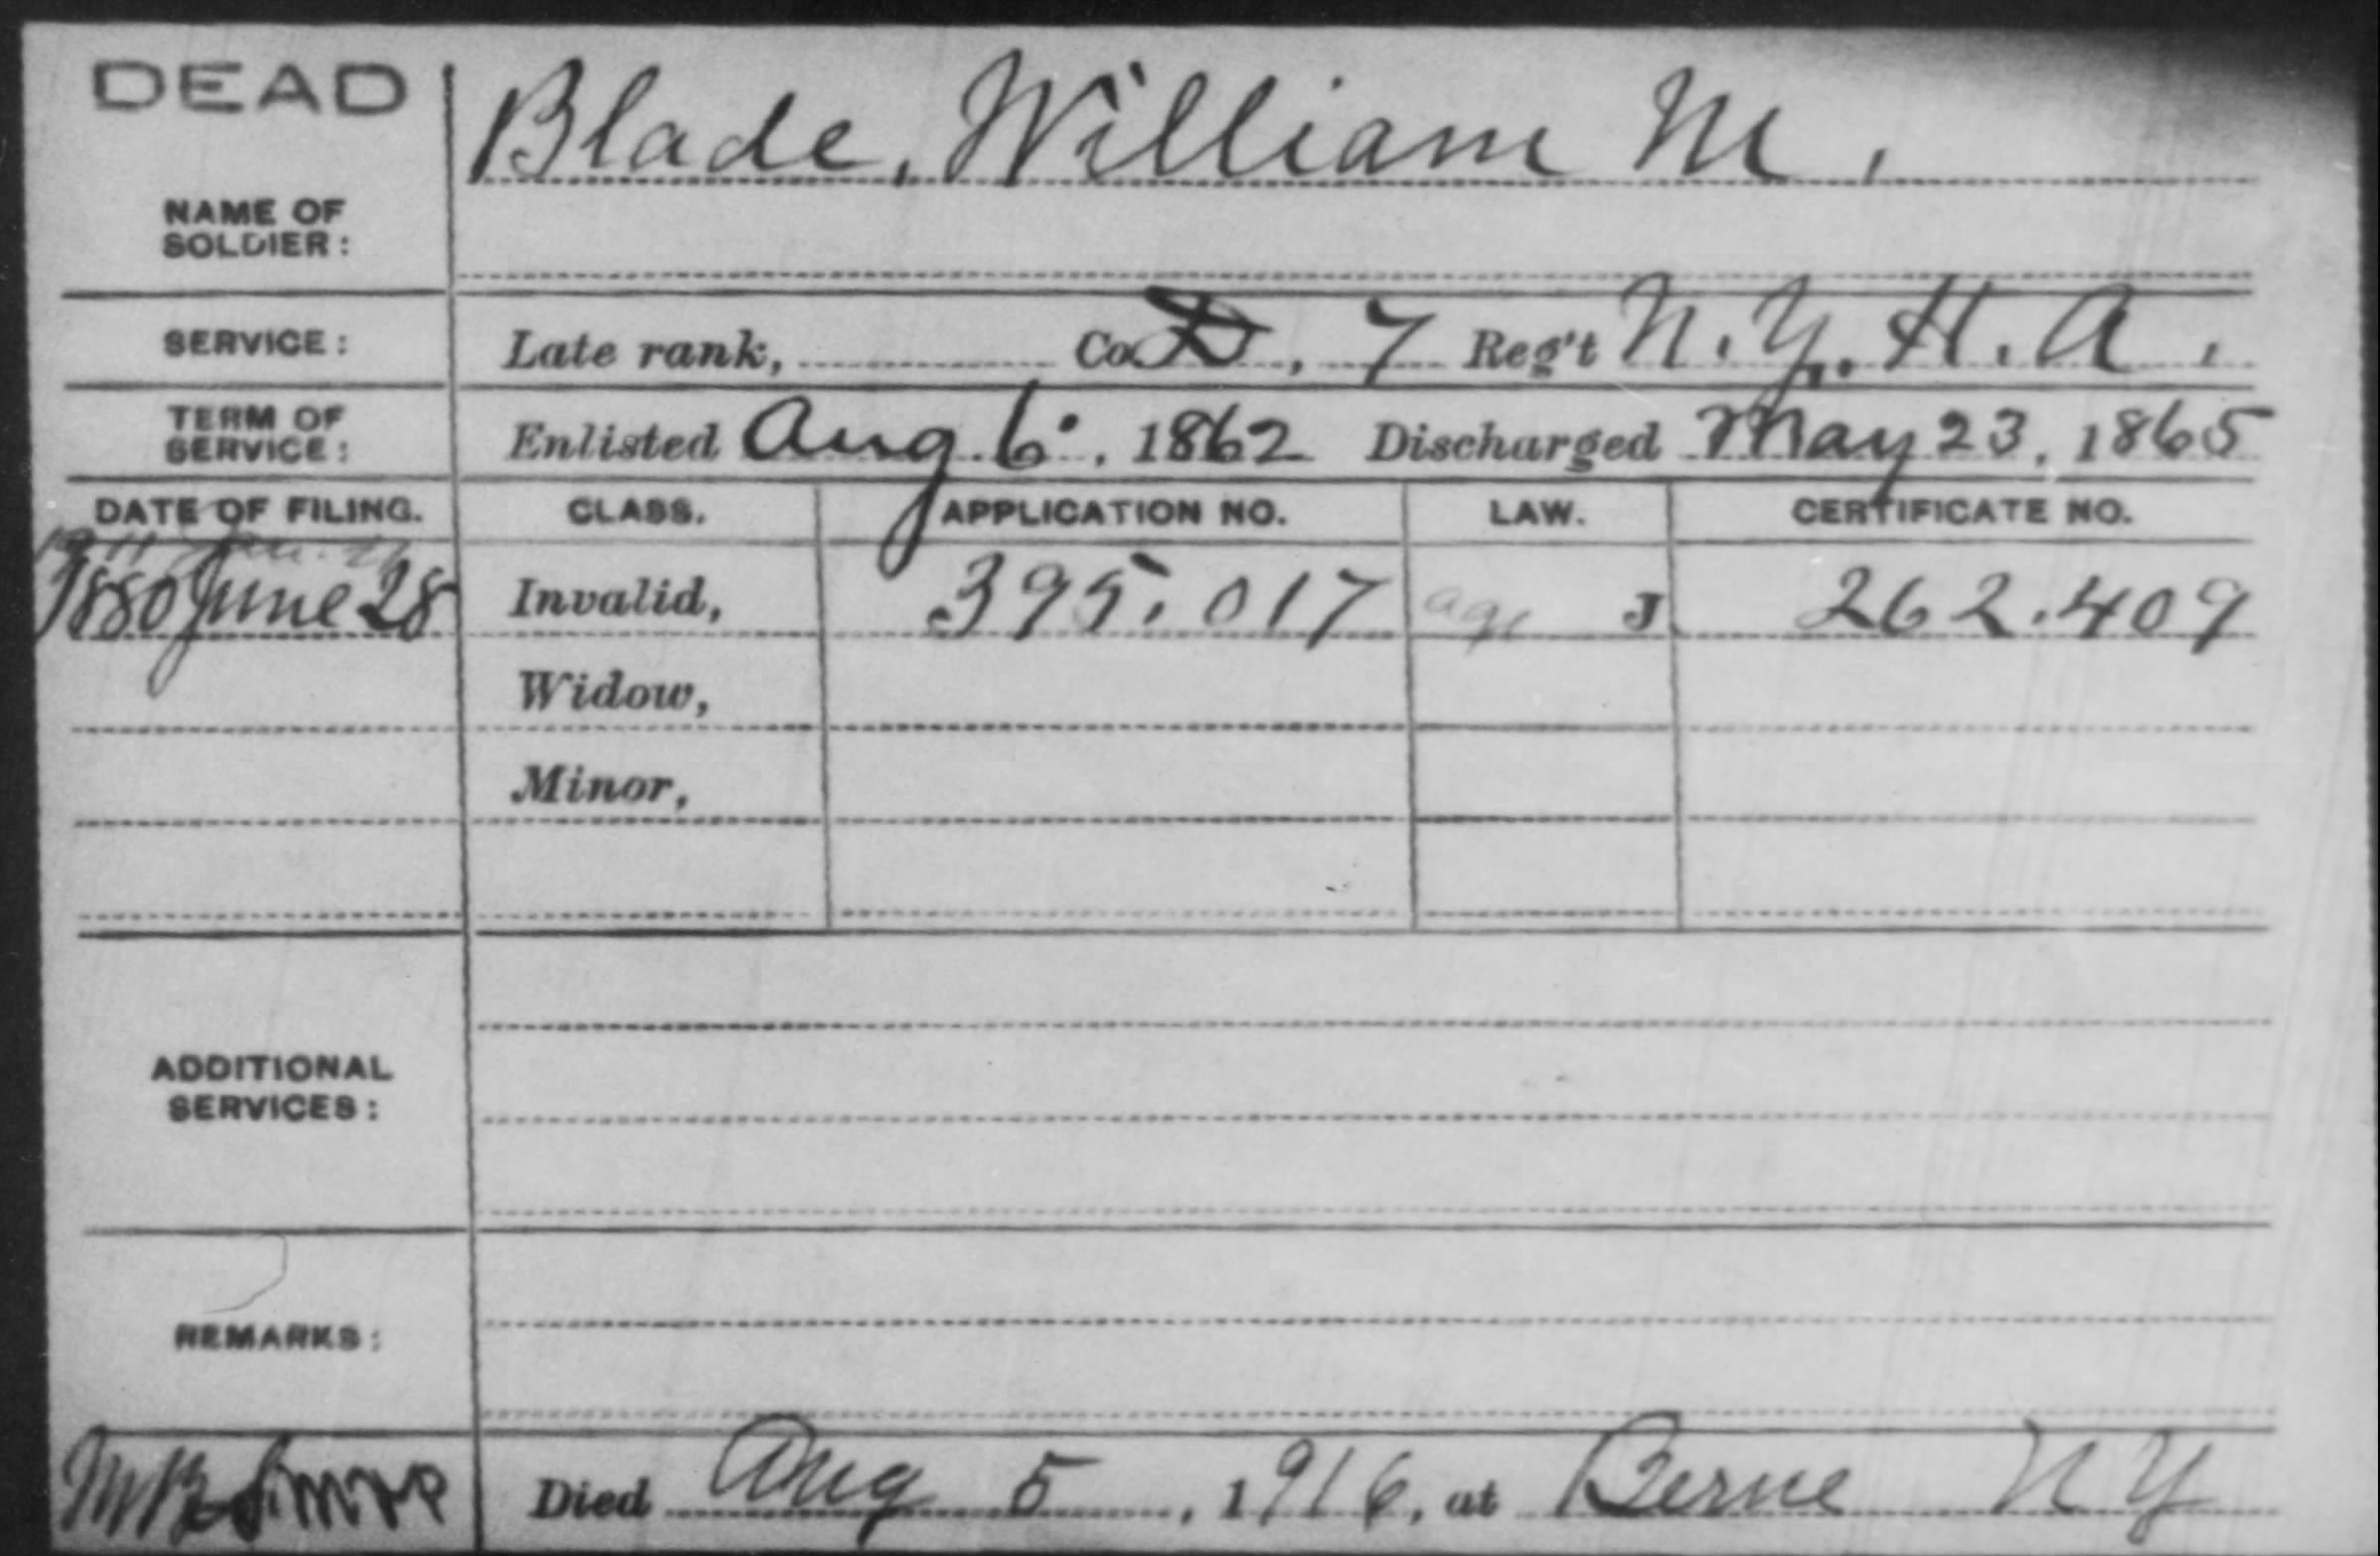 DEAD
Blade, William M.
NAME OF
SOLDIER:
SERVICE: Late rank, Co. D, 7 Reg't N.Y. H. A.
TERM OF
SERVICE: Enlisted Aug 6, 1862 Discharged May 23, 1865
DATE OF FILING. CLASS. APPLICATION NO. LAW. CERTIFICATE NO.
1880 June 28 Invalid, 395.017 age J 262.409
Widow,
Minor,
ADDITIONAL
SERVICES:
REMARKS:
Died Aug 5, 1916, at Berne N Y